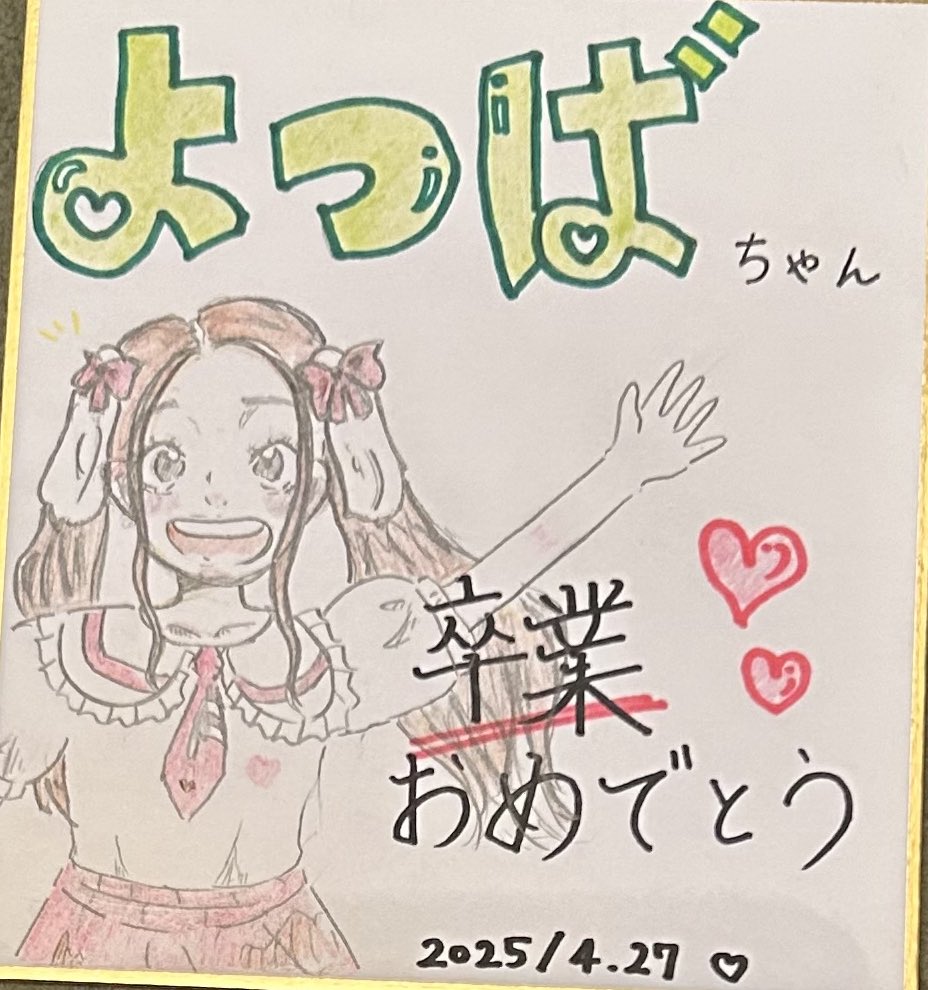 よつばちゃん
卒業
おめでとう
2025/4.27♡